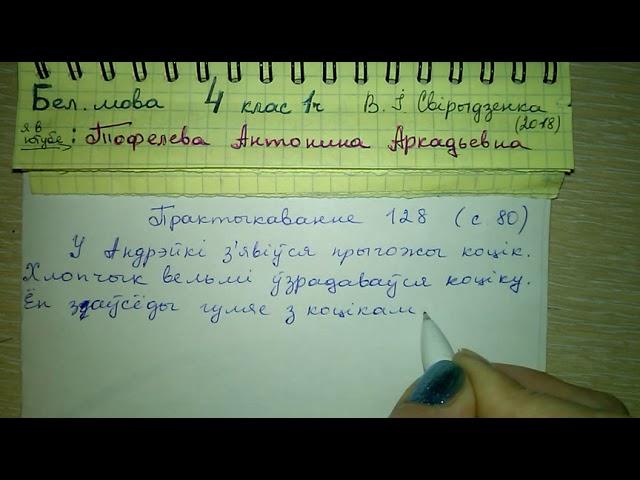 Бел. мова 4 клас 1ч В. І Свірыдзенка
(2018)
я в ютубе: Тофелева Антонина Аркадьевна
Практыкаванне 128 (с 80)
У Андрэйкі з'явіўся прыгожы коцік.
Хлопчык вельмі ўзрадаваўся коціку.
Ён заўсёды гуляе з коцікам